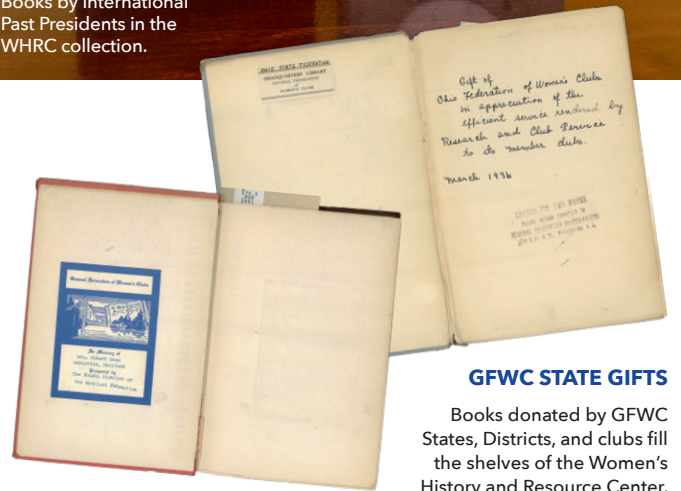 Books by International
Past Presidents in the
WHRC collection.
OHIO STATE FEDERATION
HEADQUARTERS LIBRARY
GENERAL FEDERATION
OF
WOMEN'S CLUBS
Gift of
Ohio Federation of Women's Clubs
in appreciation of the
efficient service rendered by
Research and Club Service
to its member clubs.
March 1936
LOANED FOR TWO WEEKS
PLEASE RETURN PROMPTLY TO
GENERAL FEDERATION HEADQUARTERS
WASHINGTON, D.C.
General Federation of Women's Clubs
In Memory of
Mrs. Robert
Maryland
Presented by
The Fourth District of
the Maryland Federation
GFWC STATE GIFTS
Books donated by GFWC
States, Districts, and clubs fill
the shelves of the Women's
History and Resource Center.